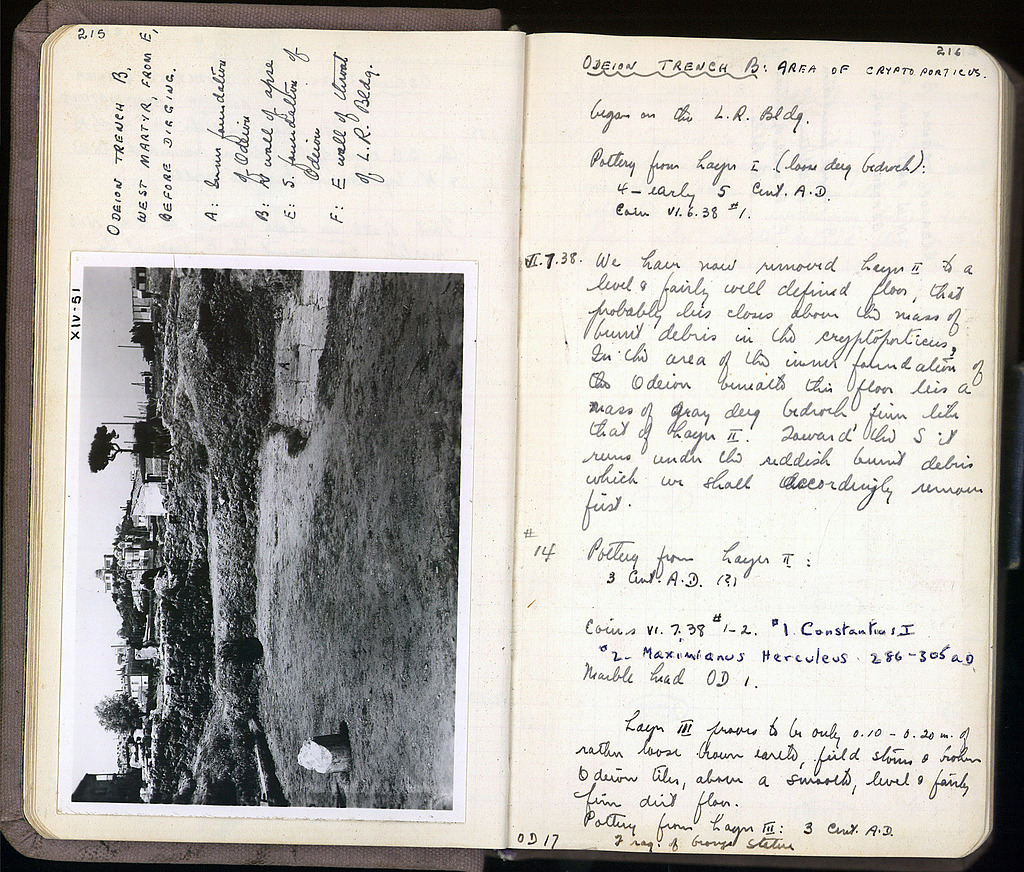 215
ODEION TRENCH B,
WEST MARTYR, FROM E,
BEFORE DIGGING.
A: Inner foundation
of Odeion
B: wall of apse
E: S. foundation of
Odeion
F: E wall of throat
of L.R. Bldg.
XIV-51
216
ODEION TRENCH B: AREA OF CRYPTOPORTICUS.
began on the L.R. Bldg.
Pottery from Layer I (loose derg bedrock):
4 - early 5 Cent. A.D.
Coin VI.6.38 #1.
VI.7.38. We have now removed Layer II to a
level & fairly well defined floor, that
probably lies close above the mass of
burnt debris in the cryptoporticus.
In the area of the inner foundation of
the Odeion beneath this floor lies a
mass of gray derg bedrock firm like
that of Layer II. Toward the S it
runs under the reddish burnt debris
which we shall accordingly remove
first.
#
14 Pottery from Layer II:
3 Cent. A.D. (?)
Coins VI.7.38 #1-2. #1 Constantius I
#2 - Maximianus Herculeus 286-305 AD
Marble head OD 1.
Layer III proves to be only 0.10 - 0.20 m. of
rather loose brown earth, field stones & broken
Odeion tiles, above a smooth, level & fairly
firm dirt floor.
Pottery from Layer III: 3 Cent. A.D.
OD 17 Frag. of bronze statue